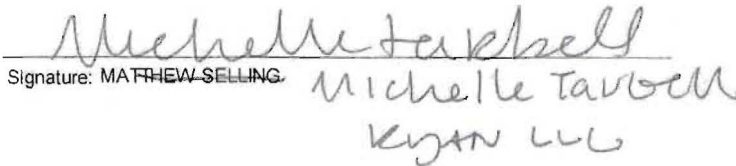 Michelle Tarbell
Signature: MATTHEW SELLING Michelle Tarbell
Ryan LLC